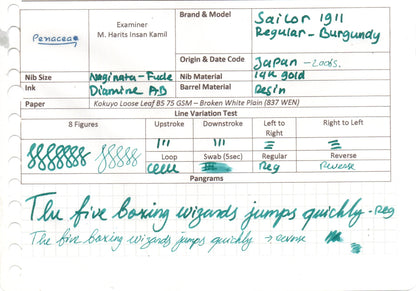 Penacea
Examiner
M. Harits Insan Kamil
Brand & Model
Sailor 1911
Regular - Burgundy
Origin & Date Code
Japan - 2002s.
Nib Size
Naginata - Fude
Nib Material
14K gold
Ink
Diamine AB
Barrel Material
Resin
Paper
Kokuyo Loose Leaf B5 75 GSM – Broken White Plain (837 WEN)
Line Variation Test
8 Figures
Upstroke
Downstroke
Left to Right
Right to Left
Loop
Swab (5sec)
Regular
Reverse
Reg
Reverse
Pangrams
The five boxing wizards jumps quickly - Reg
The five boxing wizards jumps quickly →